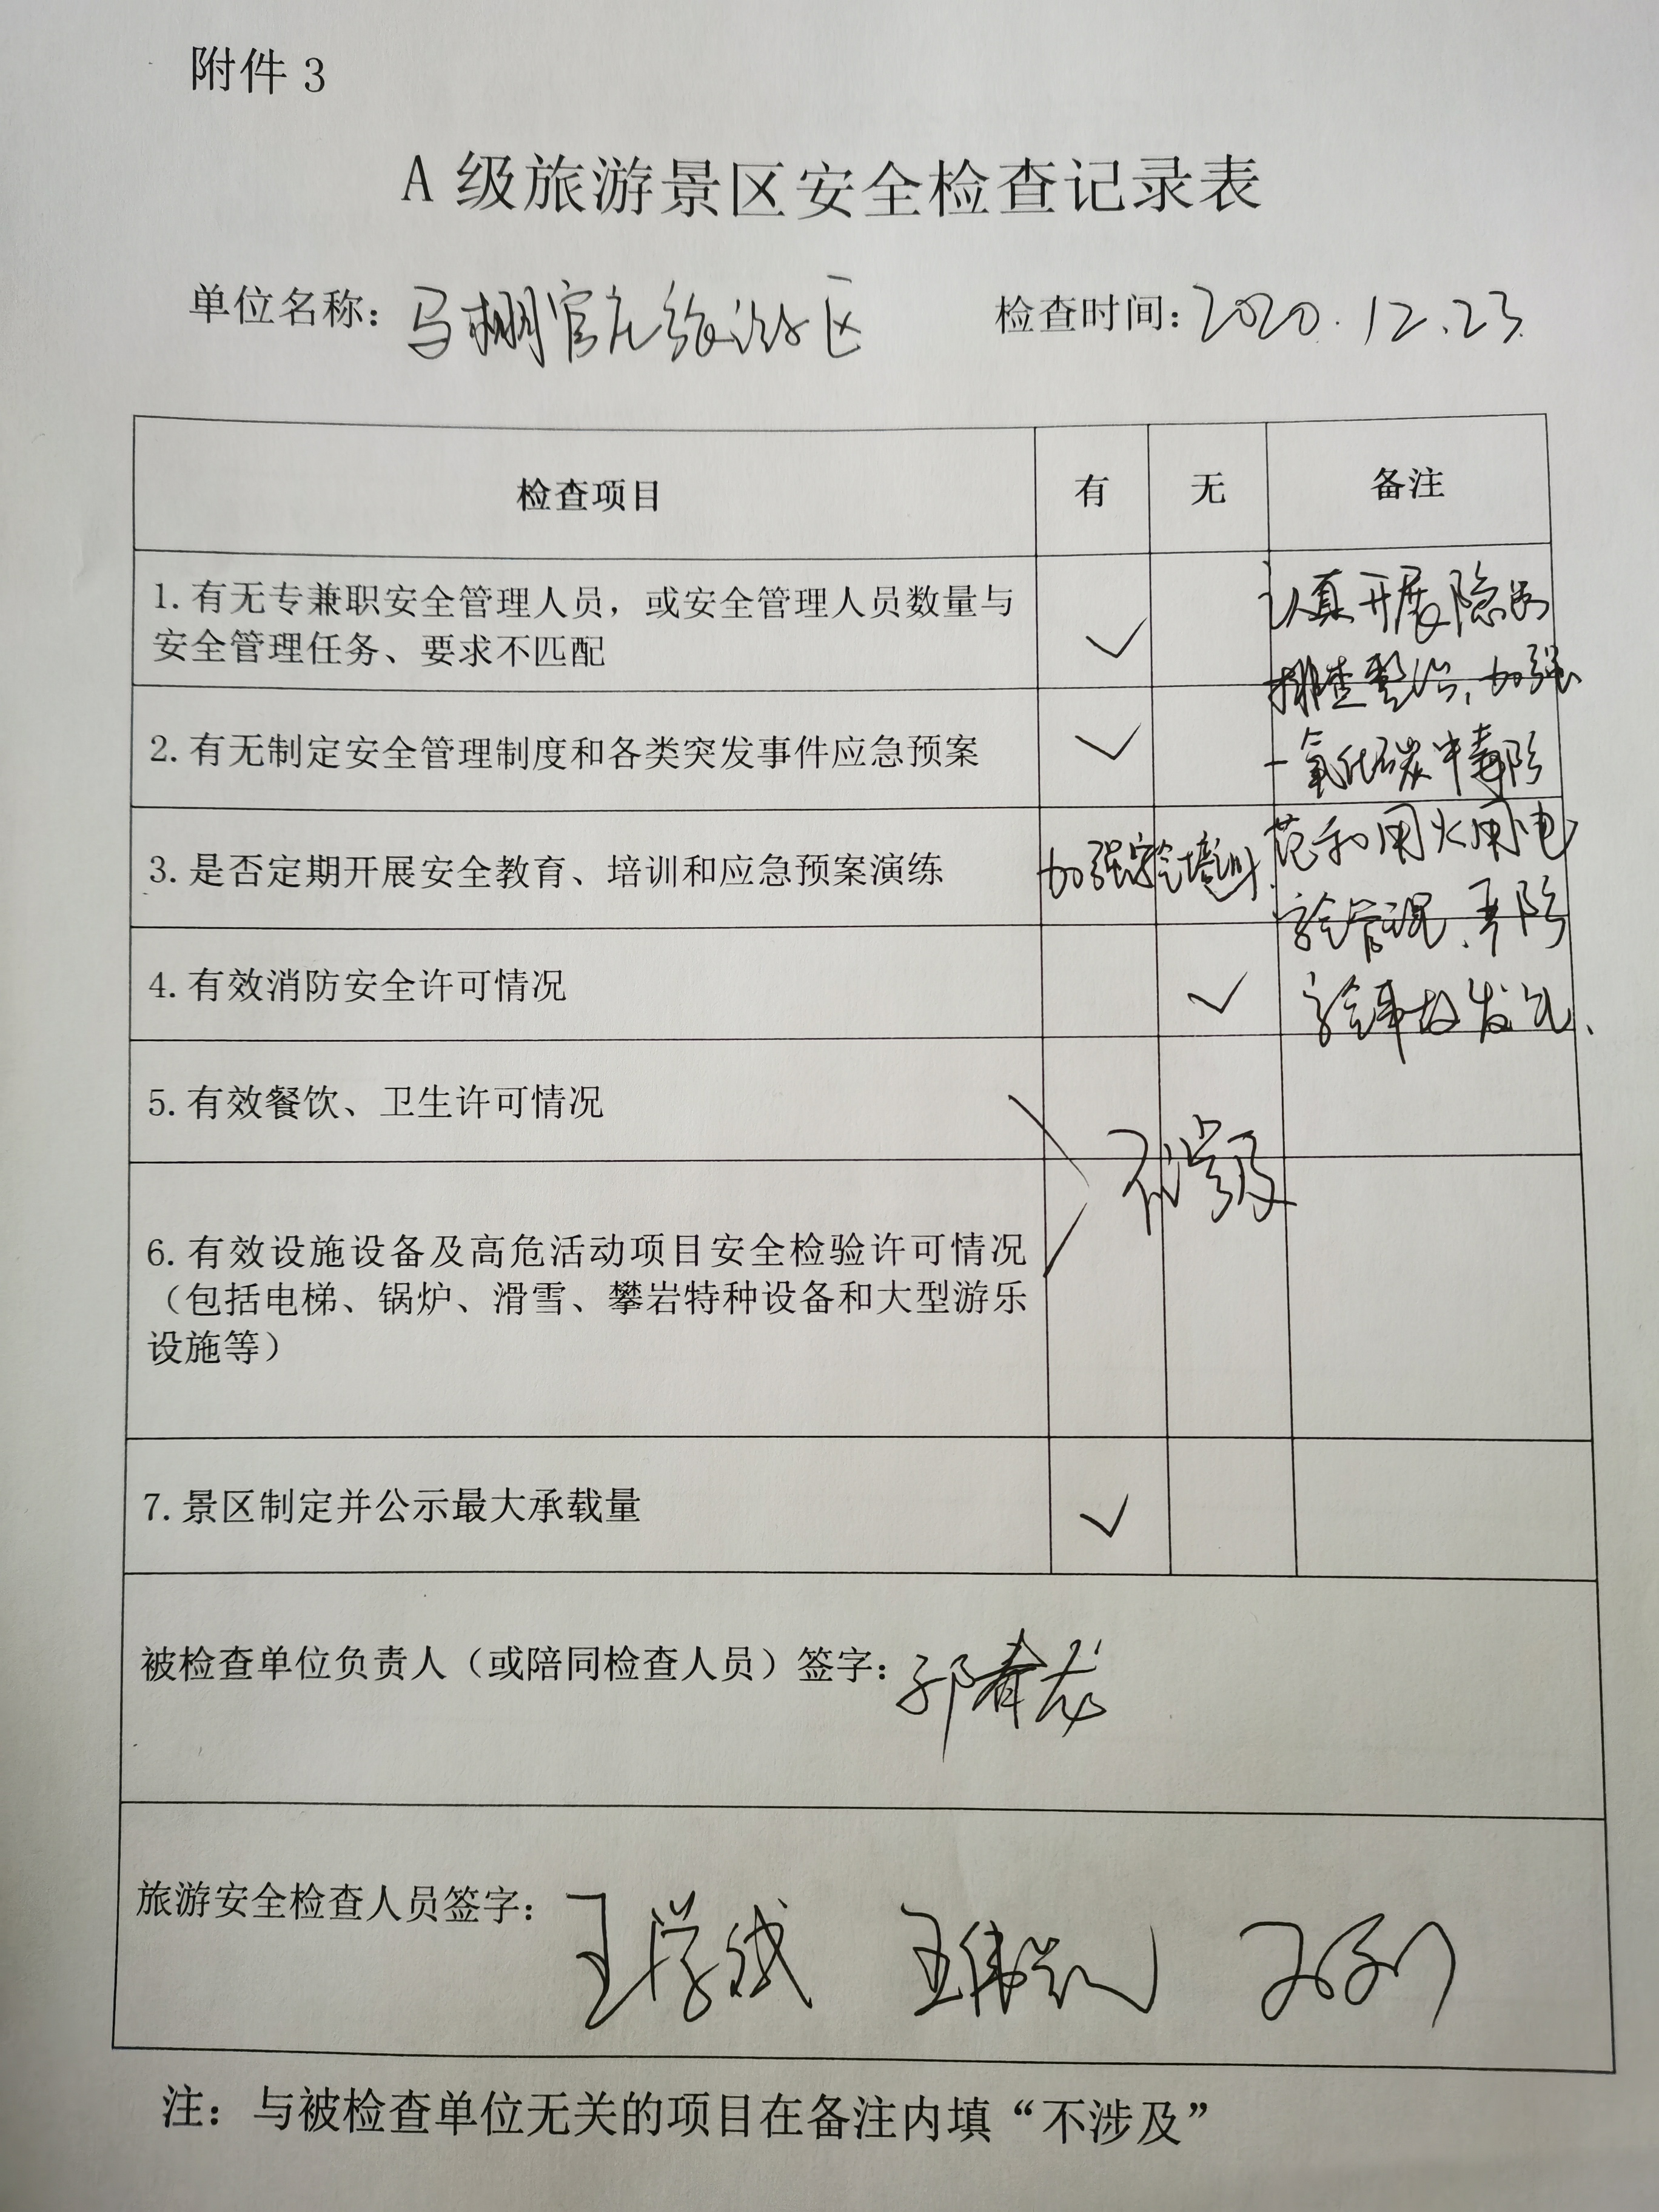 附件 3
A 级旅游景区安全检查记录表
单位名称：马棚官庄旅游区 检查时间：2020.12.23.
检查项目 有 无 备注
1. 有无专兼职安全管理人员，或安全管理人员数量与
安全管理任务、要求不匹配
✓
2. 有无制定安全管理制度和各类突发事件应急预案 ✓
3. 是否定期开展安全教育、培训和应急预案演练 加强安全培训.
4. 有效消防安全许可情况 ✓
认真开展隐患
排查整治，加强
一氧化碳中毒防
范和用火用电
安全管理，严防
安全事故发生.
5. 有效餐饮、卫生许可情况
不涉及
6. 有效设施设备及高危活动项目安全检验许可情况
（包括电梯、锅炉、滑雪、攀岩特种设备和大型游乐
设施等）
7. 景区制定并公示最大承载量 ✓
被检查单位负责人（或陪同检查人员）签字：郭春龙
旅游安全检查人员签字：王学
注：与被检查单位无关的项目在备注内填“不涉及”